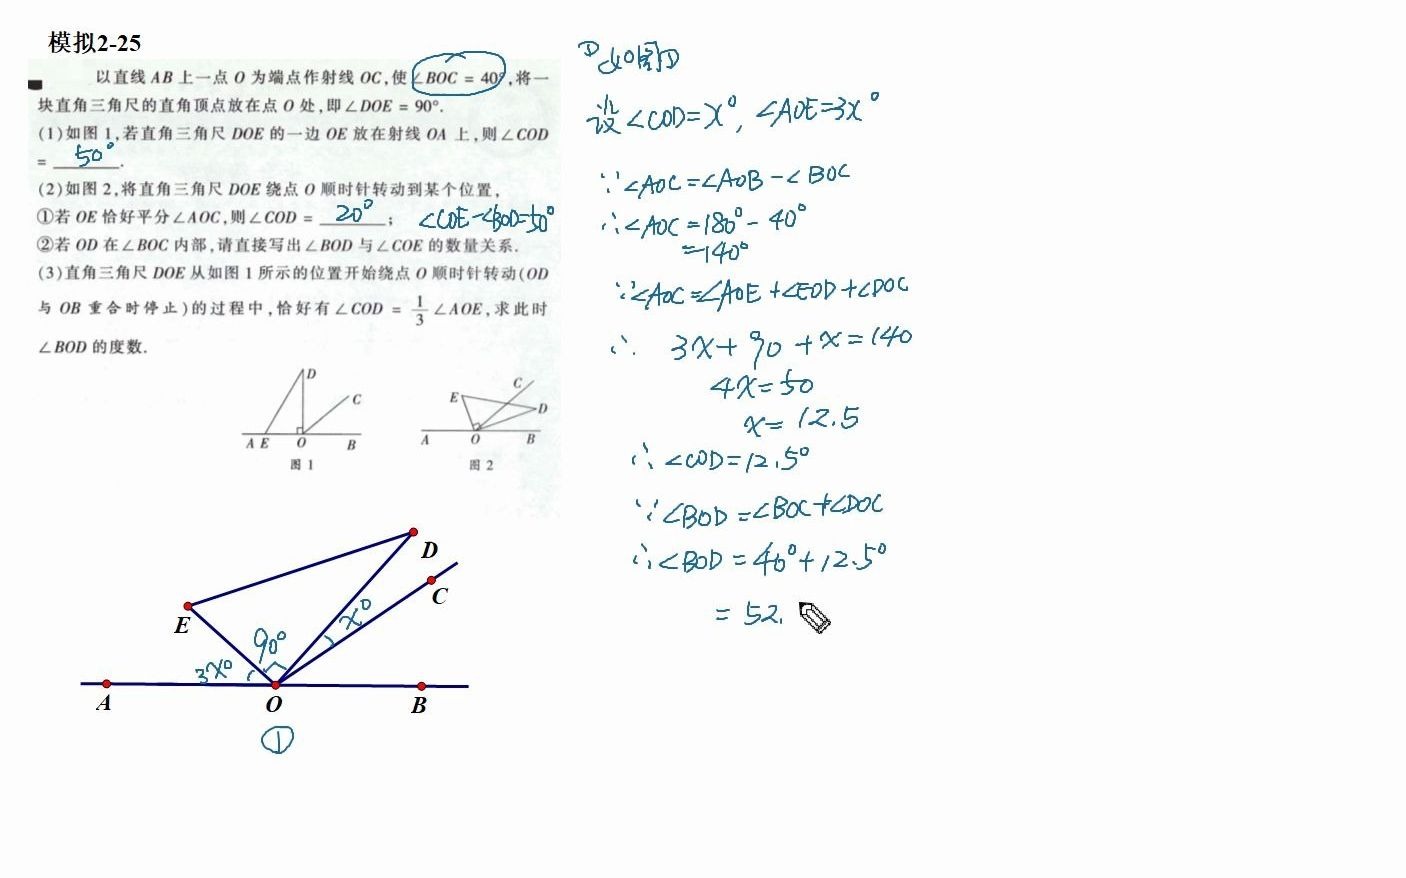 模拟2-25
以直线 AB 上一点 O 为端点作射线 OC,使∠BOC = 40°,将一
块直角三角尺的直角顶点放在点 O 处,即∠DOE = 90°.
(1)如图 1,若直角三角尺 DOE 的一边 OE 放在射线 OA 上,则∠COD
= 50°.
(2)如图 2,将直角三角尺 DOE 绕点 O 顺时针转动到某个位置,
①若 OE 恰好平分∠AOC,则∠COD = 20°; ∠COE-∠BOD=50°
②若 OD 在∠BOC 内部,请直接写出∠BOD 与∠COE 的数量关系.
(3)直角三角尺 DOE 从如图 1 所示的位置开始绕点 O 顺时针转动(OD
与 OB 重合时停止)的过程中,恰好有∠COD = 1/3 ∠AOE,求此时
∠BOD 的度数.
D
C
A E O B
图 1
C
E
D
A O B
图 2
D
C
E
90°
x°
3x°
A O B
①
①如图①
设∠COD=x°, ∠AOE=3x°
∵∠AOC=∠AOB-∠BOC
∴∠AOC=180°-40°
=140°
∵∠AOC=∠AOE+∠EOD+∠DOC
∴ 3x+90+x=140
4x=50
x=12.5
∴∠COD=12.5°
∵∠BOD=∠BOC+∠DOC
∴∠BOD=40°+12.5°
=52.